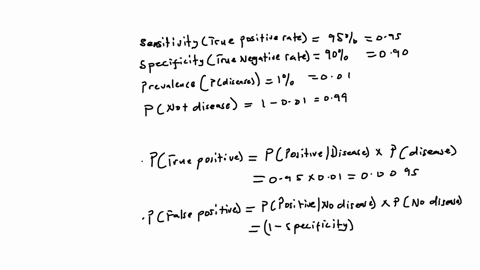 Sensitivity (True positive rate) = 95% = 0.95
Specificity (True Negative rate) = 90% = 0.90
Prevalence (P(disease)) = 1% = 0.01
P(Not disease) = 1 - 0.01 = 0.99
. P(True positive) = P(Positive/Disease) x P(disease)
= 0.95 x 0.01 = 0.0095
. P(False positive) = P(Positive/No disease) x P(No disease)
= (1 - specificity)